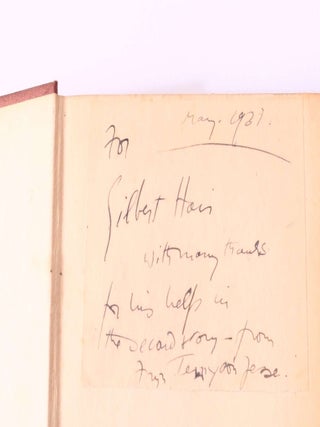 May. 1931.
For
Gilbert Hair
with many thanks
for his help in
the second story - from
Fryn Tennyson Jesse.